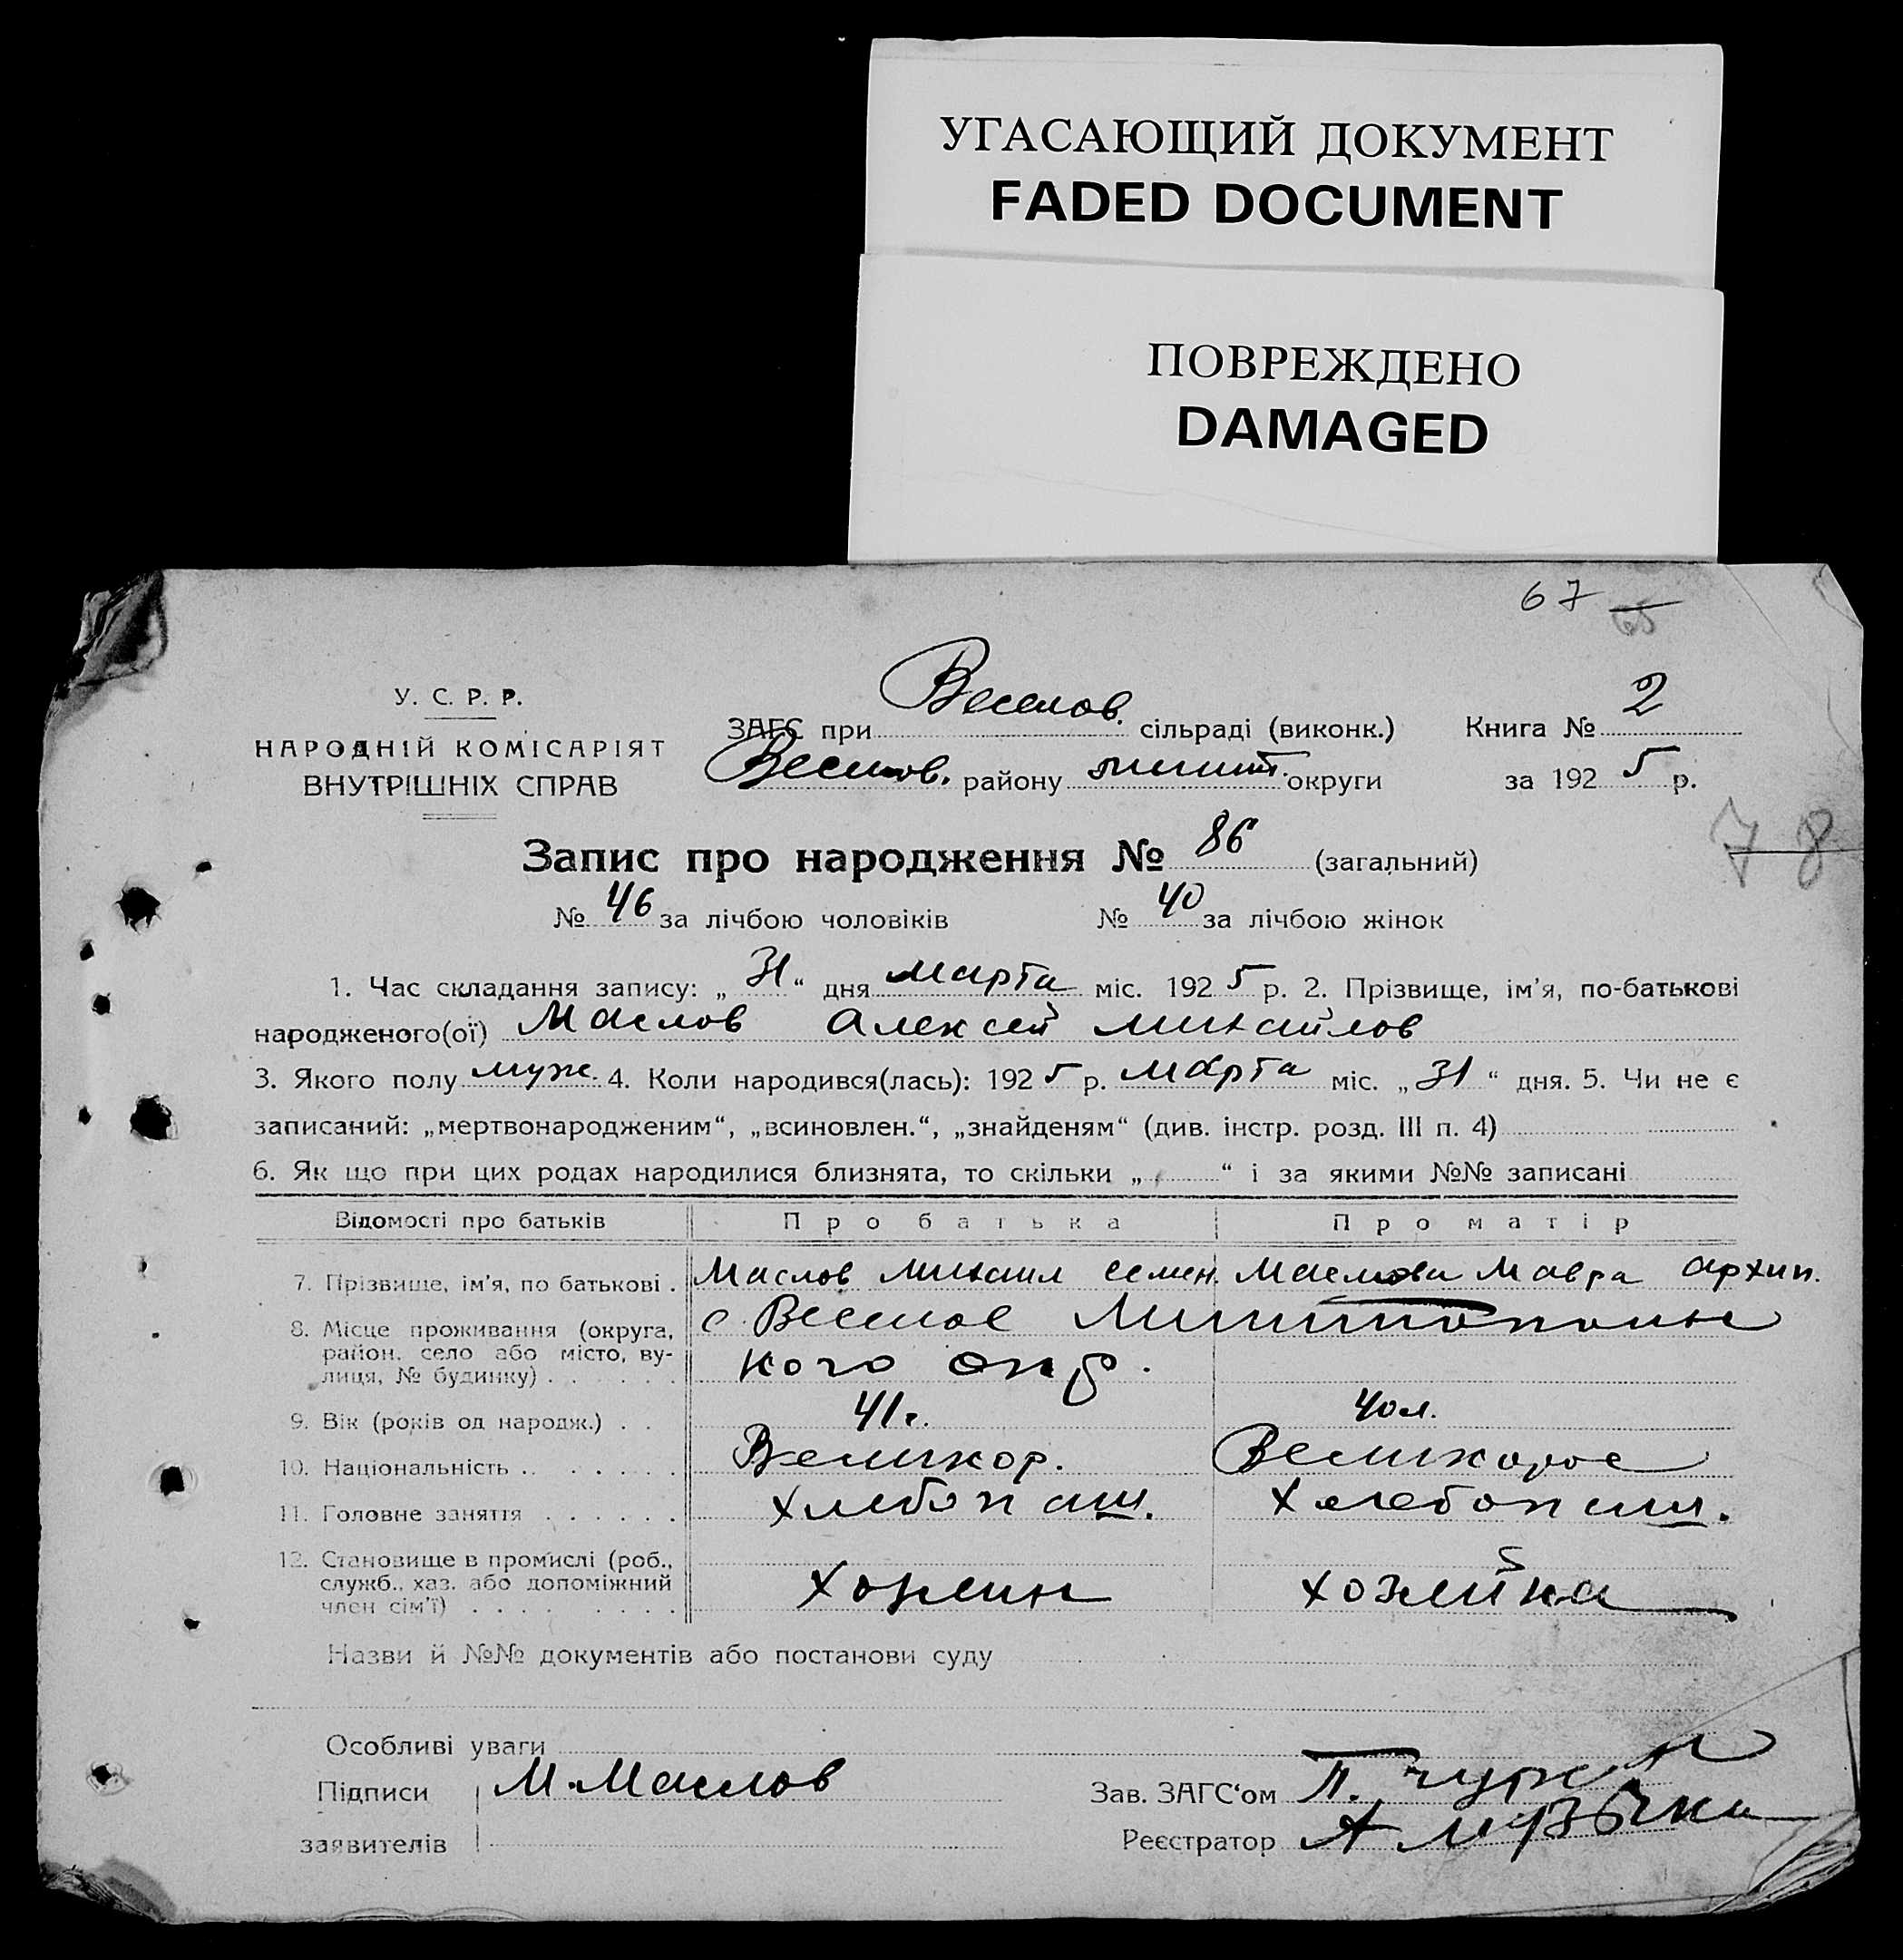 УГАСАЮЩИЙ ДОКУМЕНТ
FADED DOCUMENT
ПОВРЕЖДЕНО
DAMAGED
67 65
У. С. Р. Р.
НАРОДНІЙ КОМІСАРІЯТ
ВНУТРІШНІХ СПРАВ
ЗАГС при Веселов. сільраді (виконк.) Книга № 2
Веселов. району мелит. округи за 1925 р.
78
Запис про народження № 86 (загальний)
№ 46 за лічбою чоловіків № 40 за лічбою жінок
1. Час складання запису: „31“ дня марта міс. 1925 р. 2. Прізвище, ім’я, по-батькові
народженого(ої) Маслов Алексей Михайлов
3. Якого полу муж. 4. Коли народився(лась): 1925 р. марта міс. „31“ дня. 5. Чи не є
записаний: „мертвонародженим“, „всиновлен.“, „знайденям“ (див. інстр. розд. III п. 4)
6. Як що при цих родах народилися близнята, то скільки „ “ і за якими №№ записані
Відомості про батьків Про батька Про матір
7. Прізвище, ім’я, по батькові . Маслов Михаил Семен. Маслова Мавра Архип.
8. Місце проживання (округа, с. Веселое Мелитопольс
район, село або місто, ву-
лиця, № будинку) . . . . . . кого окр.
9. Вік (років од народж.) . . 41 г. 40 л.
10. Національність . . . . . . . Великор. Великорос
11. Головне заняття . . . . . . Хлебопаш. Хлебопаш.
12. Становище в промислі (роб.,
служб., хаз. або допоміжний Хозяин хозяйка
член сім’ї) . . . . . . . .
Назви й №№ документів або постанови суду
Особливі уваги
Підписи М. Маслов Зав. ЗАГС‘ом П.
заявителів Реєстратор А